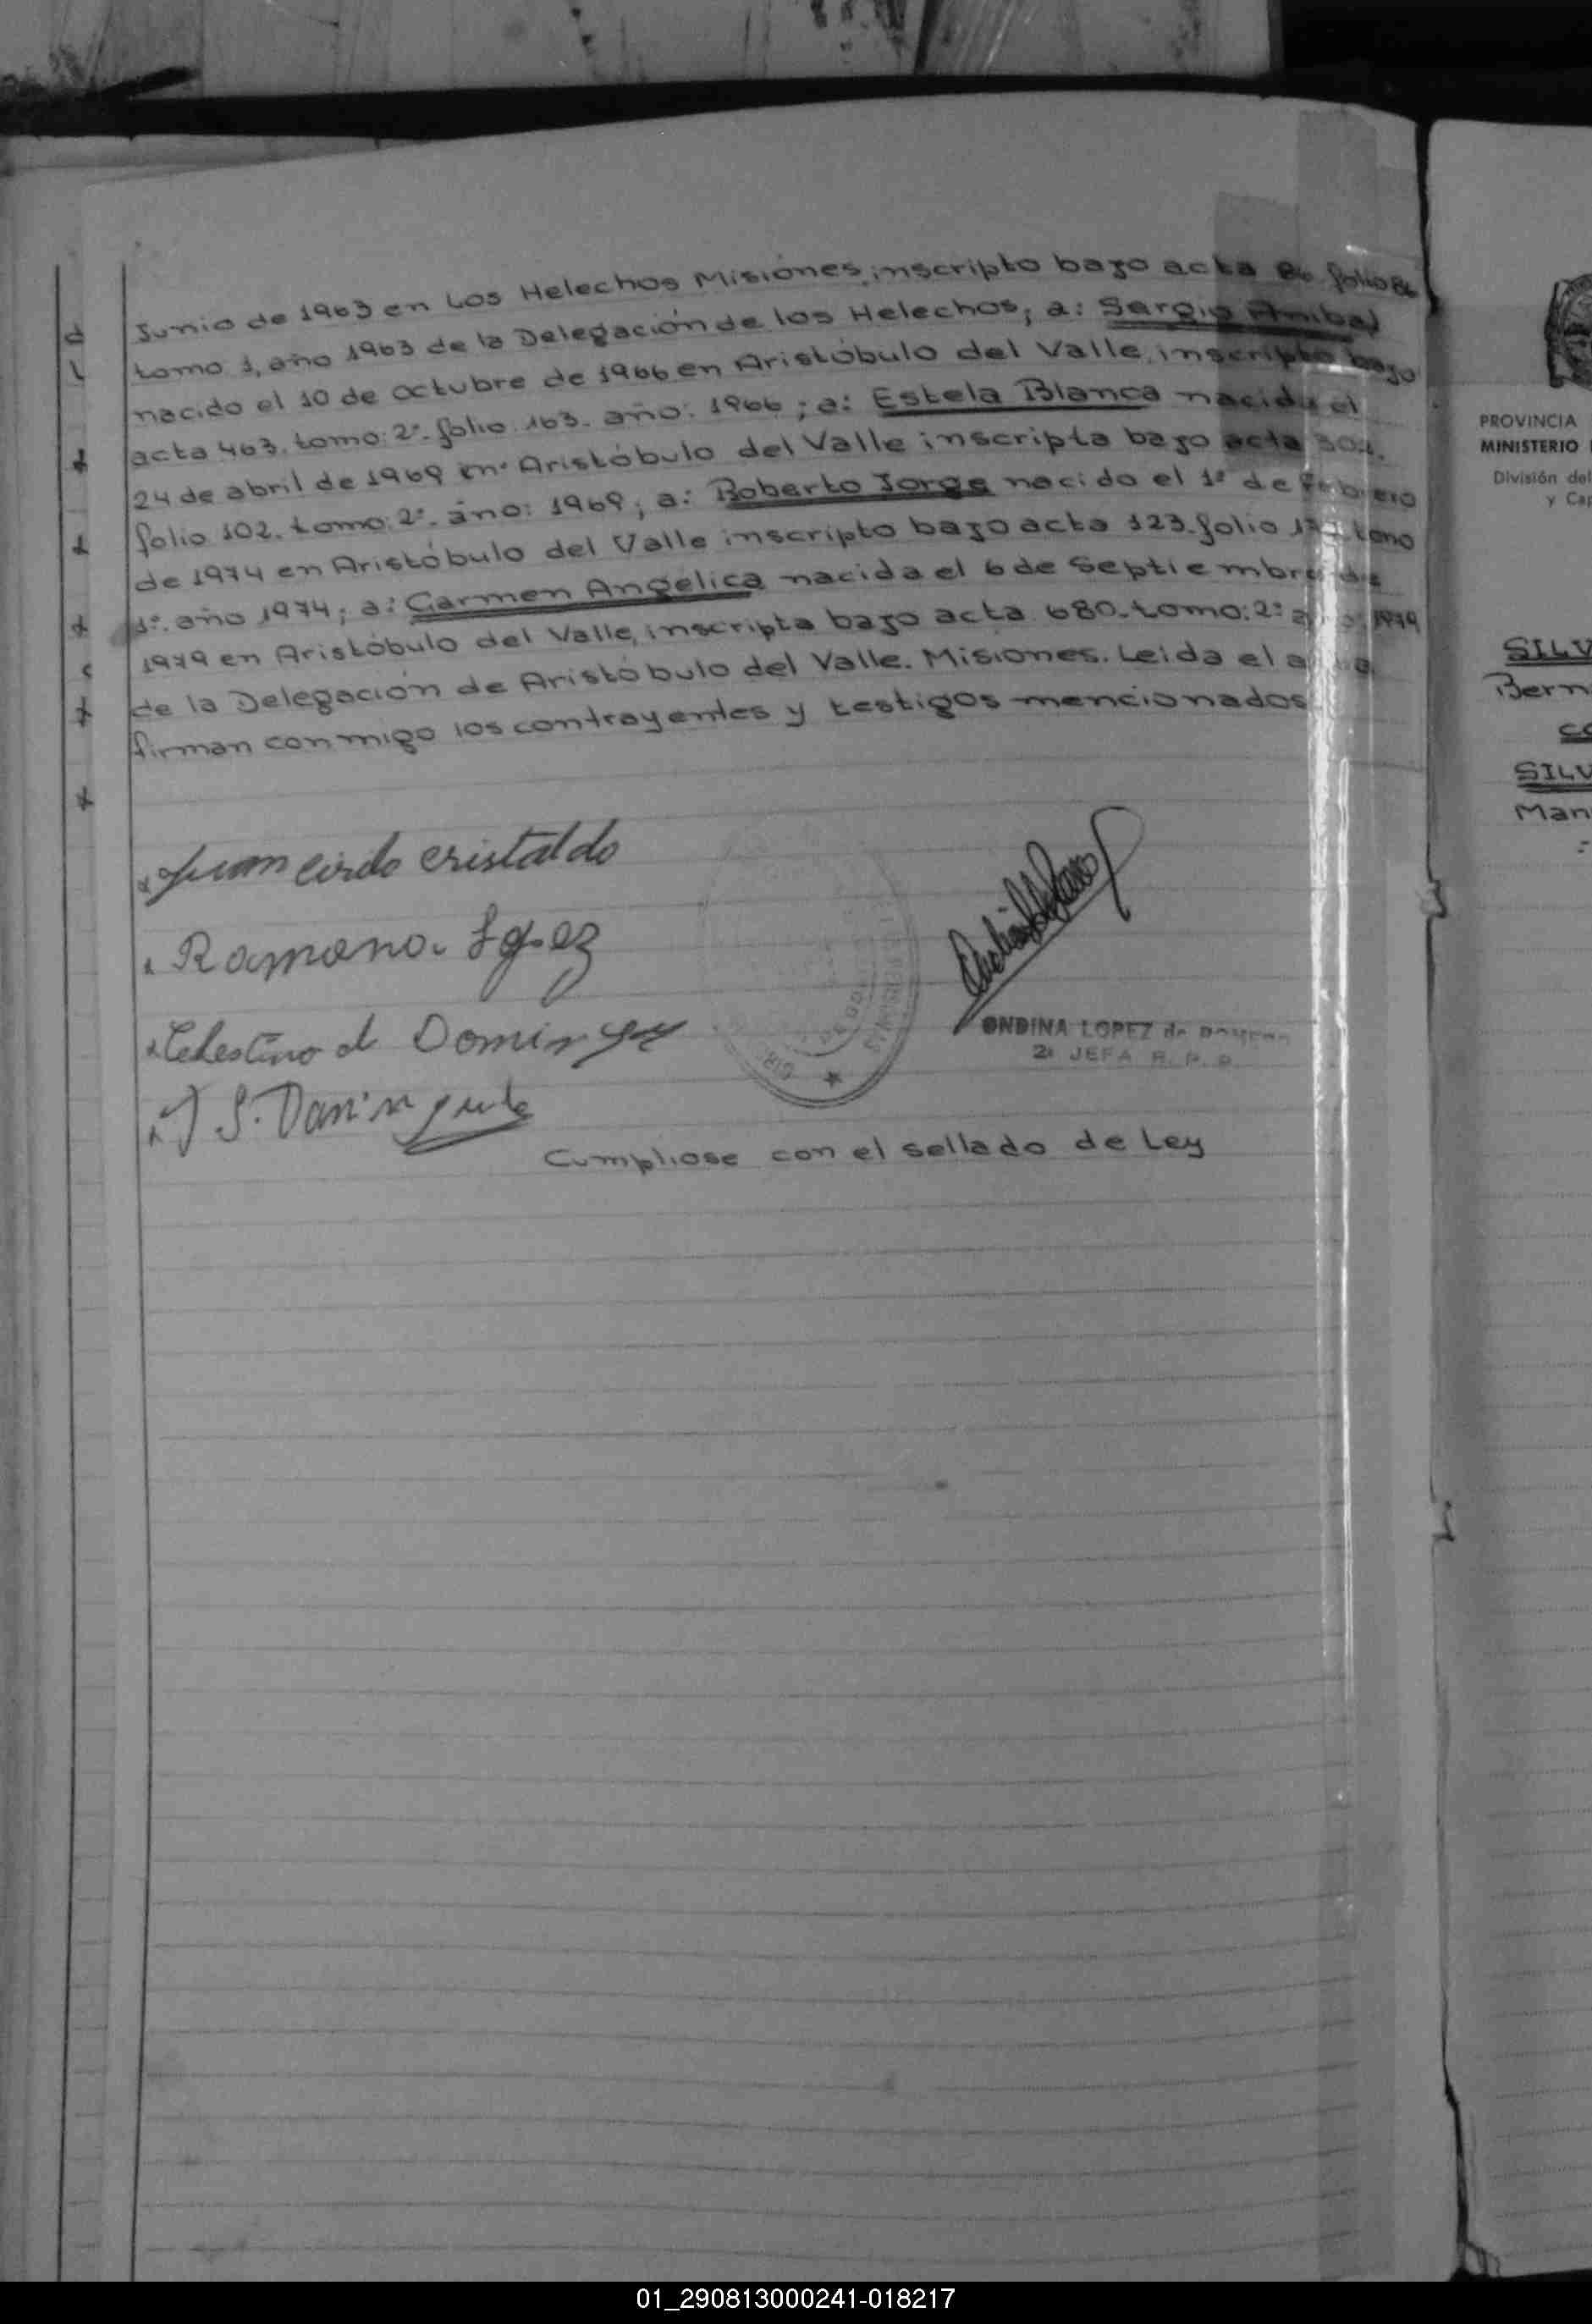 Junio de 1963 en Los Helechos Misiones, inscripto bajo acta 86 folio 86
tomo 1, año 1963 de la Delegación de los Helechos; a: Sergio Anibal
nacido el 10 de octubre de 1966 en Aristóbulo del Valle, inscripto bajo
acta 463. tomo: 2º. folio 163. año: 1966; a: Estela Blanca nacida el
24 de abril de 1969 en Aristóbulo del Valle inscripta bajo acta 302.
folio 102. tomo: 2º. año: 1969; a: Roberto Jorge nacido el 1º de febrero
de 1974 en Aristóbulo del Valle inscripto bajo acta 123. folio tomo
1º. año 1974; a: Carmen Angélica nacida el 6 de Septiembre de
1979 en Aristóbulo del Valle, inscripta bajo acta 680. tomo: 2º año: 1979
de la Delegación de Aristóbulo del Valle. Misiones. Leida el acta
firman conmigo los contrayentes y testigos mencionados
Juan cirilo cristaldo
Ramona Lopez
Celestino d Dominguez
S.
ONDINA LOPEZ de ROMERO
2º JEFA R. P. P.
Cumpliose con el sellado de Ley
PROVINCIA
MINISTERIO
División del
y Cap
SILV
Bern
CO
SILV
Man
01_290813000241-018217